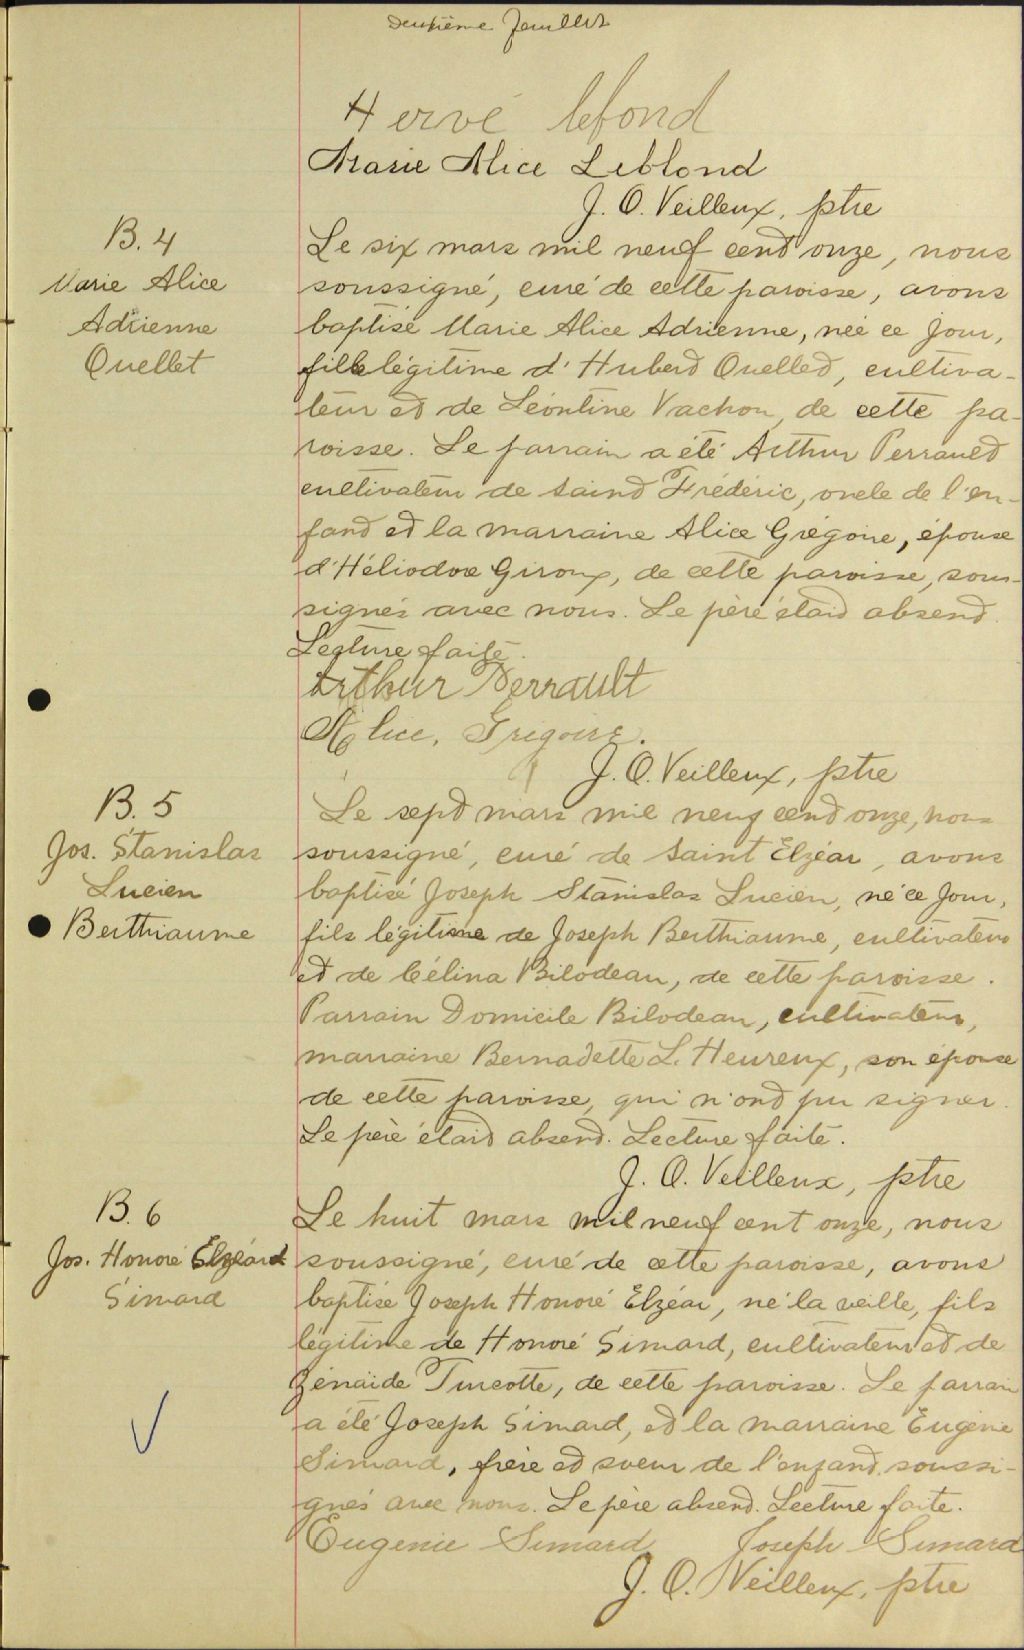 Deuxième feuillet
Hervé lefond
Marie Alice Leblond
J. O. Veilleux, ptre
B. 4
Marie Alice
Adrienne
Ouellet
Le six mars mil neuf cent onze, nous
soussigné, curé de cette paroisse, avons
baptisé Marie Alice Adrienne, née ce jour,
fille légitime d'Hubert Ouellet, cultiva-
teur et de Léontine Vachon, de cette pa-
roisse. Le parrain a été Arthur Perrault
cultivateur de Saint Frédéric, oncle de l'en-
fant et la marraine Alice Grégoire, épouse
d'Héliodore Giroux, de cette paroisse, sous-
signés avec nous. Le père était absent.
Lecture faite.
Arthur Perrault
Alice, Grégoire.
J. O. Veilleux, ptre
B. 5
Jos. Stanislas
Lucien
Berthiaume
Le sept mars mil neuf cent onze, nous
soussigné, curé de Saint Elzéar, avons
baptisé Joseph Stanislas Lucien, né ce jour,
fils légitime de Joseph Berthiaume, cultivateur
et de Célina Bilodeau, de cette paroisse.
Parrain Domicile Bilodeau, cultivateur,
marraine Bernadette L'Heureux, son épouse
de cette paroisse, qui n'ont pu signer.
Le père était absent. Lecture faite.
J. O. Veilleux, ptre
B. 6
Jos. Honoré Elzéard
Simard
Le huit mars mil neuf cent onze, nous
soussigné, curé de cette paroisse, avons
baptisé Joseph Honoré Elzéar, né la veille, fils
légitime de Honoré Simard, cultivateur et de
Zénaïde Turcotte, de cette paroisse. Le parrain
a été Joseph Simard, et la marraine Eugénie
Simard, frère et soeur de l'enfant soussi-
gnés avec nous. Le père absent. Lecture faite.
Eugenie Simard Joseph Simard
J. O. Veilleux, ptre